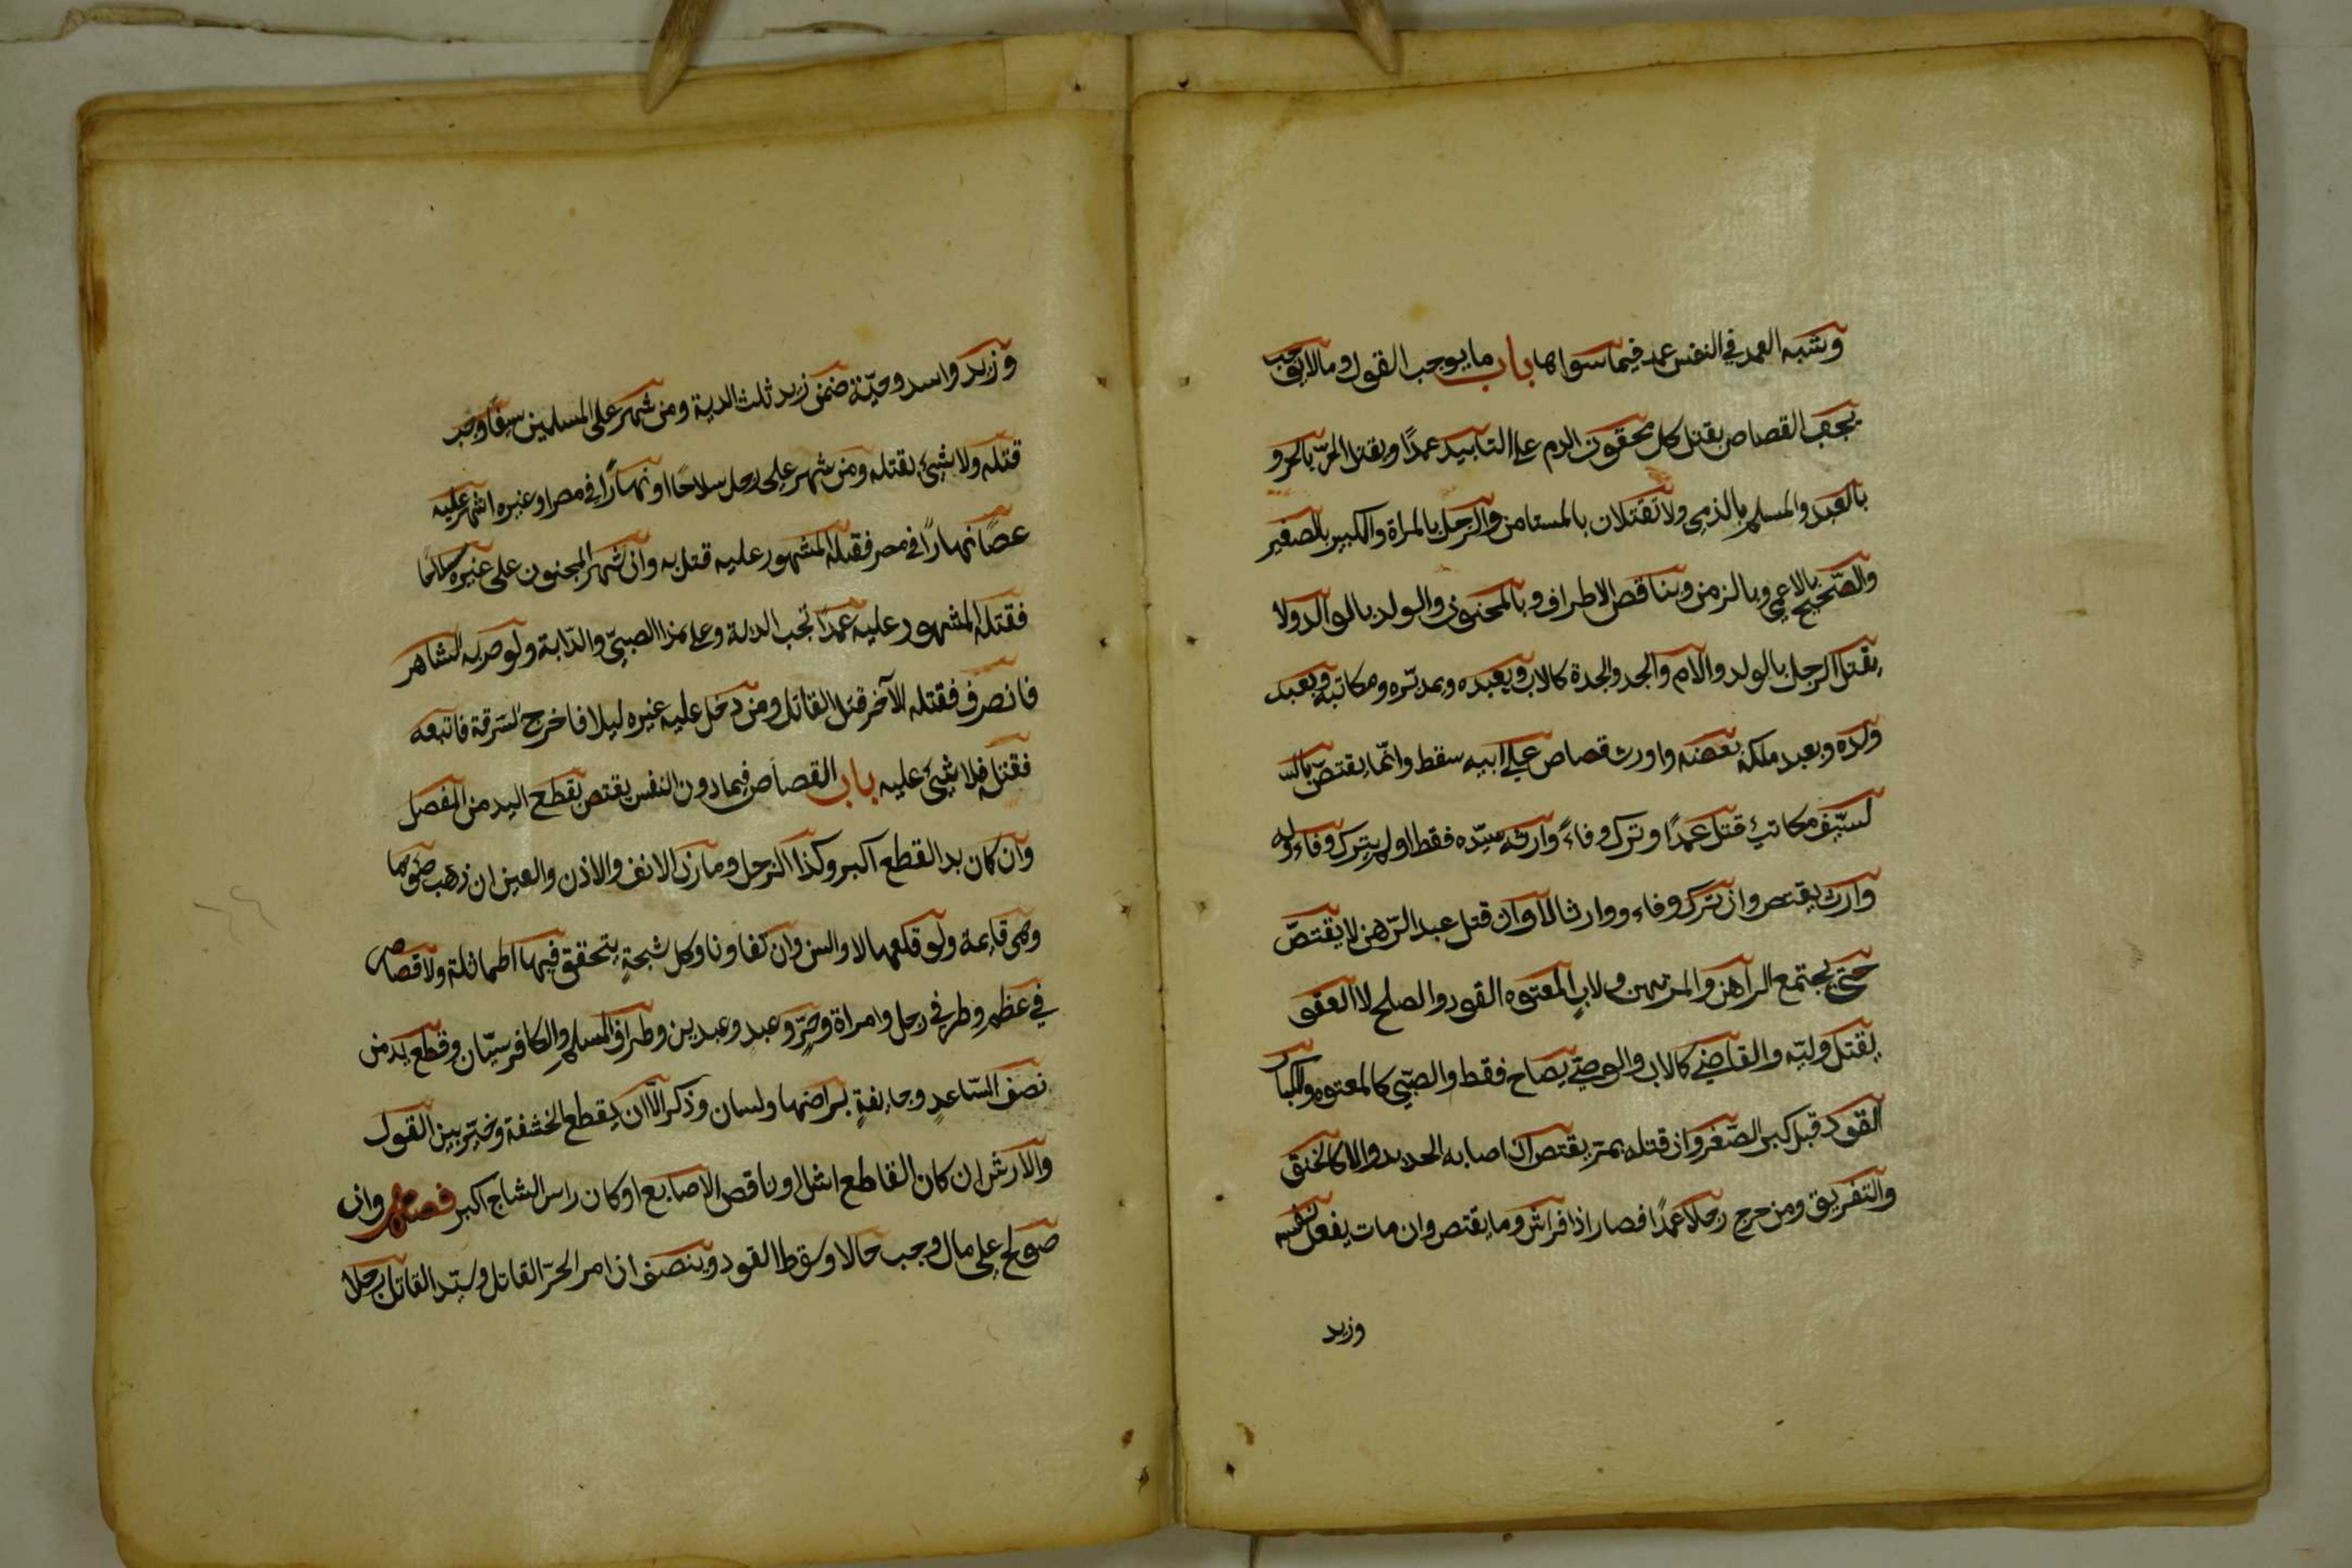 وشبه العمد في النفس عمد فيما سواها باب ما يوجب القول وما لا يوجب
يجب القصاص بقتل كل محقون الدم على التابيد عمدًا ويقتل الحرّ بالحر و
بالعبد والمسلم بالذمي ولا تقتلان بالمستامن والرجل بالمراة والكبير بالصغير
والصّحيح بالاعمى وبالزمن وبناقص الاطراف وبالمجنون والولد بالوالد ولا
يقتل الرجل بالولد والام والجد والجدة كالاب وبعبده وبمدبّره ومكاتبه وبعبد
ولده وبعبد ملك بعضه واورث قصاص على ابيه سقط وانّما يقتصّ بالس
لسيّف مكاتب قتل عمدًا وترك وفاءً وارثه سيّده فقط اولم يترك وفاء وله
وارث يقتص وان ترك وفاء ووارثا لا وان قتل عبد الرّهن لا يقتصّ
حتى يجتمع الراهن والمرتهن ولابِ المعتوه القود والصلح لا العفو
بقتل وليّه والقاضي كالاب والوصيّ يصاح فقط والصّبي كالمعتوه وللكبار
القود قبل كبر الصّغر وان قتله بمرّ يقتص ان اصابه الحديد والا لا كالخنق
والتفريق ومن جرح رجلا عمدًا فصار اذا فراش وما يقتص وان مات بفعل نفسه
وزيد
وزيد واسد وحيّة ضمن زيد ثلث الدية ومن شهر على المسلمين سيفًا وجب
قتله ولا شيئ بقتله ومن شهر على رجل سلاحًا او نهارًا في مصر او غيره اشهر عليه
عصًا نهارًا في مصر فقتله المشهور عليه قتل به وان شهر المجنون على غيره سلاحًا
فقتله المشهور عليه عمدًا تجب الدية وعلى هذا الصبيّ والدّابة ولو ضربه الشاهر
فانصرف فقتله الآخر قتل القاتل ومن دخل عليه غيره ليلا فاخرج السّرقة فاتبعه
فقتله فلا شيئ عليه باب القصاص فيما دون النفس يقتص بقطع اليد من المفصل
وان كان يد القطع اكبر وكذا الرجل ومارن الانف والاذن والعين ان ذهب ضوها
وهى قايمة ولو قلعها لا والسن وان تفاوتا وكل شجةٍ يتحقق فيها المماثلة ولا قصاص
في عظم وطر في رجل وامراة وحرّ وعبد وعبدين وطراف المسلم والكافر سيّان وقطع يد من
نصف السّاعدِ وجايفةٍ براضها ولسان وذكر الّا ان يقطع الحشفة وخيّر بين القول
والارش ان كان القاطع اشل او ناقص الاصابع او كان راس الشاج اكبر فصل وان
صولح على مال وجب حالا وسقط القود وينصف ان امر الحرّ القاتل وسيّد القاتل رجلا